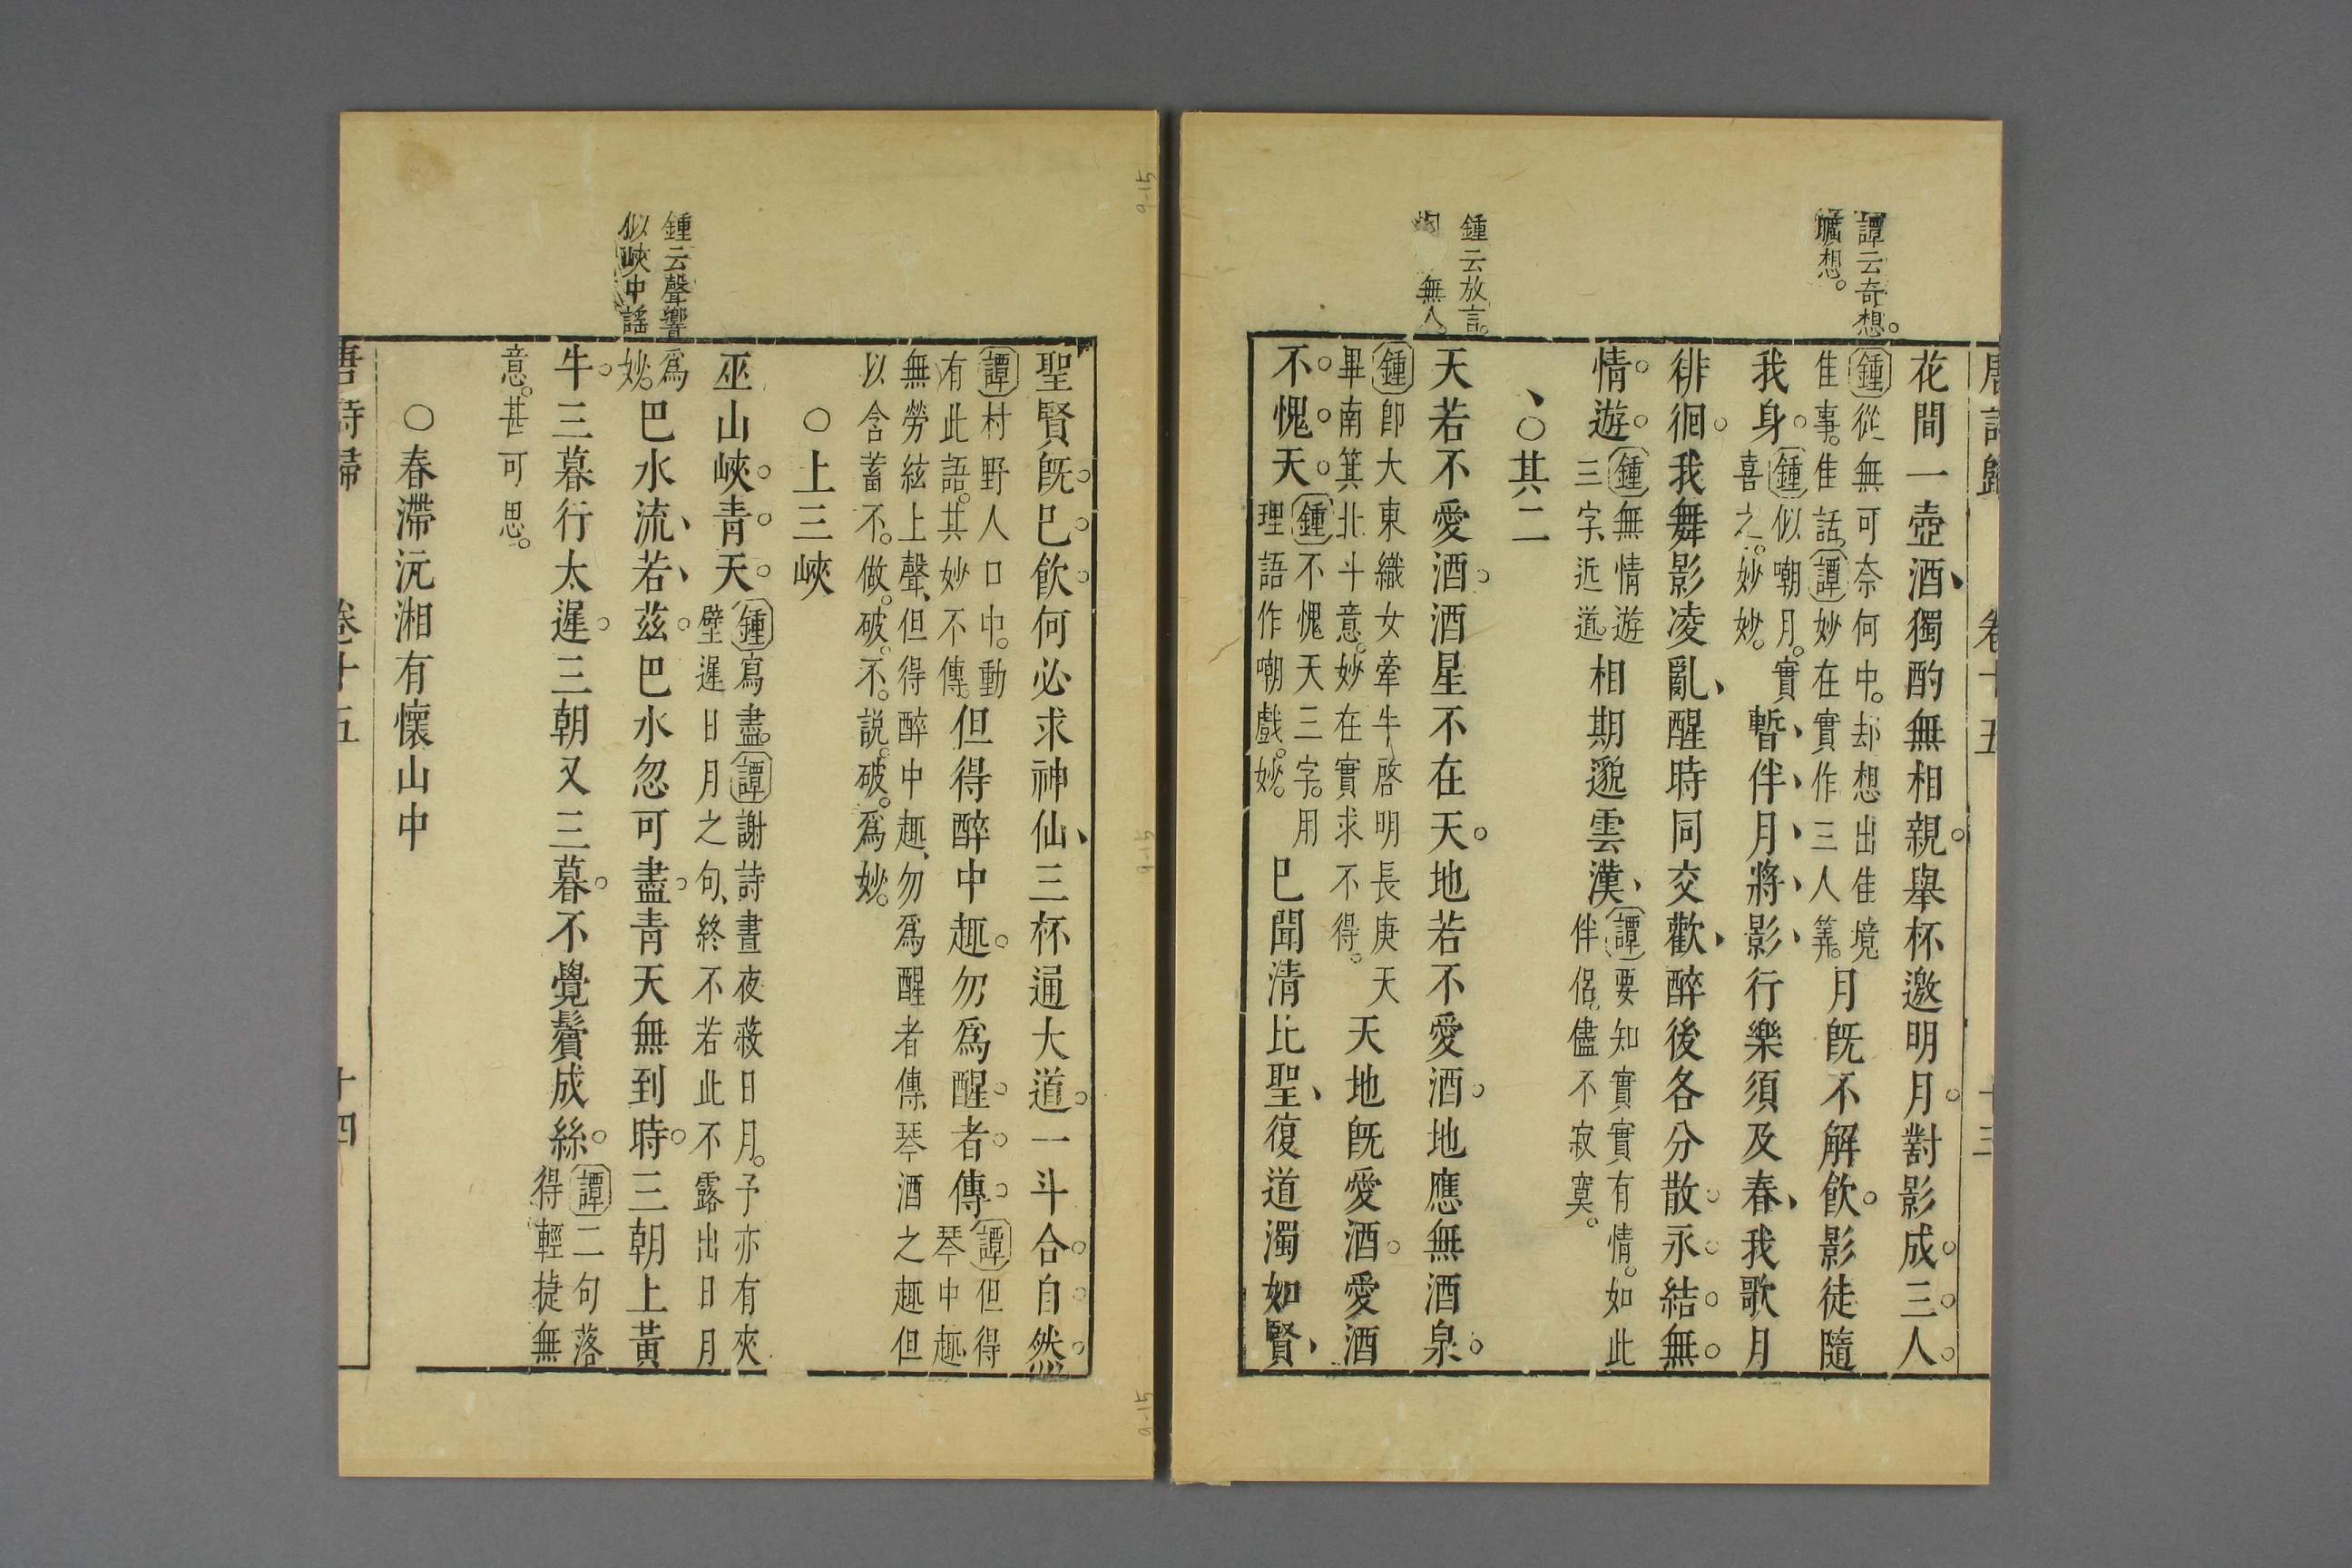 唐詩歸 卷十五 十三
譚云奇想。
曠想。
花間一壺酒、獨酌無相親。舉杯邀明月。對影成。三。人。
鍾從無可奈何中。却想出佳境
佳事。佳話。譚妙在實作三人筭。
月旣不解飮。影徒隨
我身。
鍾似嘲月。實
喜之。妙妙。
暫、伴、月、將、影、行樂須及春、我歌月
徘徊。我舞影凌亂、醒時同交歡、醉後各分散。永。結。無。
情。遊。
鍾無情遊
三字、近道。
相期邈雲漢、
譚要知實實有情。如此
伴侶。儘不寂寞。
、○其二
鍾云放言。
無人。
天若不愛酒。酒星不在天。地若不愛酒。地應無酒泉。
鍾卽大東織女牽牛啓明長庚天
畢南箕北斗意。妙在實求不得。
天地旣愛酒。愛酒
不。愧。天。
鍾不愧天三字。用
理語作嘲戲。妙。
巳聞清比聖、復道濁如賢、
聖賢旣。巳。飮。何必求神仙、三杯通大道。一斗合。自。然。
譚村野人口中。動
有此語。其妙不傳。
但得醉中趣。勿爲醒。者。傳。
譚但得
琴中趣、
無勞絃上聲、但得醉中趣、勿爲醒者傳、琴酒之趣但
以含蓄不。做。破。不。説。破。爲妙。
○上三峽
巫山峽。青。天。
鍾寫盡。譚謝詩晝夜蔽日月。予亦有夾
壁遲日月之句、終不若此不露出日月
鍾云聲響
似峽中謠
爲
妙。
巴水流、若、茲。巴水忽可盡。青天無到時。三朝上黃
牛。三暮行太遲。三朝又三暮。不覺鬢成絲。
譚二句落
得輕㨗無
意。甚可思。
○春滯沅湘有懷山中
唐詩歸 卷十五 十四